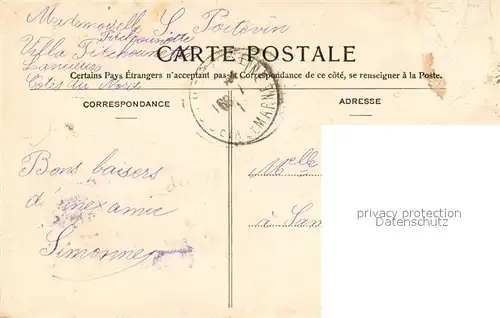 Mademoiselle S. Poitevin
Villa
Côtes du Nord
CARTE POSTALE
Certains Pays Étrangers n'acceptant pas la Correspondance de ce côté, se renseigner à la Poste.
CORRESPONDANCE
ADRESSE
Bons baisers
d'une amie
Simonne
Melle
à Lan
privacy protection
Datenschutz